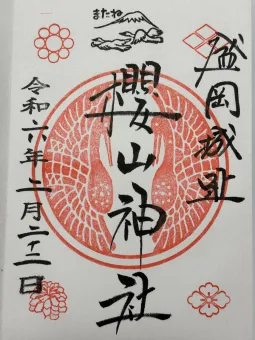 またね
盛岡城址
櫻山神社
令和六年二月二十二日